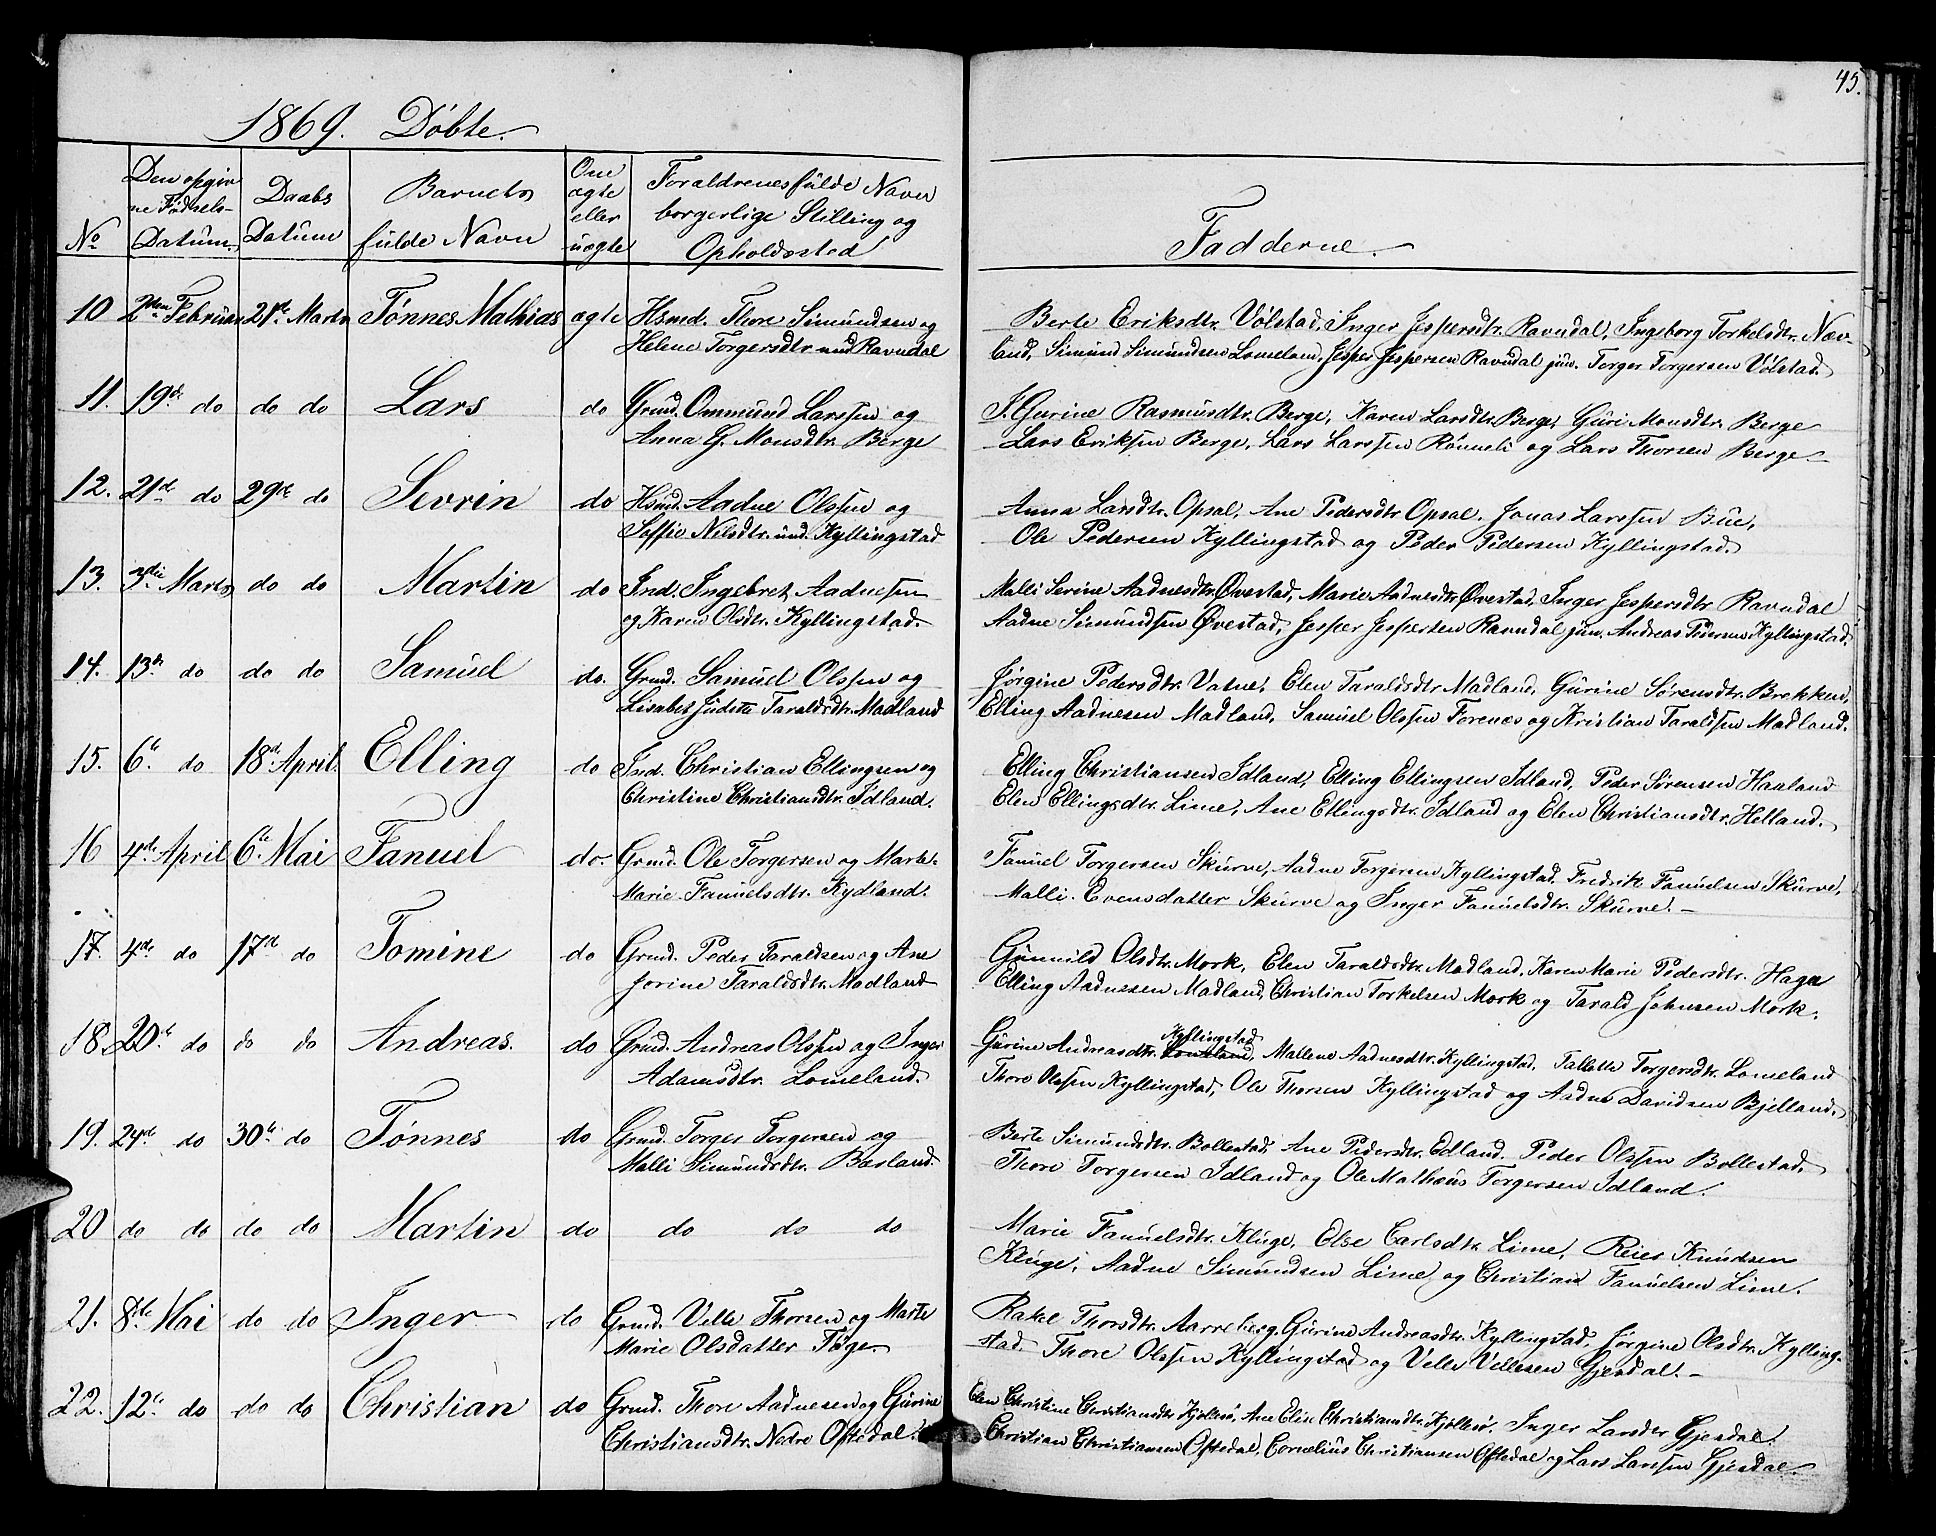 45.
1869. Döbte.
No
Den opgiv
ne Födsels-
Datum.
Daabs
Datum
Barnets
fulde Navn
Om
ægte
eller
uægte
Foraldrenes fulde Navn
borgerlige Stilling og
Opholdssted
Fadderne.
10 2den Februar 21de Marts Tönnes Mathias ægte Hsmd. Thore Simundsen og
Helene Torgersdtr. und Ravndal
Berte Eriksdtr. Völstad, Inger Jespersdtr. Ravndal, Ingeborg Torkelsdtr. Næv-
land, Simund Simundsen Lomeland, Jesper Jespersen Ravndal jun. Torger Torgersen Völstad.
11. 19de do do do Lars do Grmd. Ommund Larssen og
Anna G. Monsdtr. Berge
J. Gurine Rasmusdtr. Berge, Karen Larsdtr. Berge, Guri Monsdtr. Berge
Lars Eriksen Berge, Lars Larssen Rönneli og Lars Thorsen Berge
12. 21de do 29de do Sevrin do Hsmd. Aadne Olssen og
Soffie Nilsdtr. und. Kyllingstad
Anna Larsdtr. Opsal, Ane Pedersdtr. Opsal. Jonas Larssen Bue,
Ole Pedersen Kyllingstad og Peder Pedersen Kyllingstad.
13. 3die Marts do do Martin do Ind. Ingebret Aadnesen
og Karen Olsdtr. Kyllingstad.
Malli Serine Aadnesdtr. Øvestad, Marie Aadnesdtr. Øvestad, Inger Jespersdtr. Ravndal
Aadne Simundsen Øvestad, Jesper Jespersen Ravndal jun. Andreas Pedersen Kyllingstad.
14. 13de do do do Samuel do. Grmd. Samuel Olssen og
Lisabet Judita Taraldsdtr. Madland
Jørgine Pedersdtr. Vatne, Elen Taraldsdtr. Madland, Gurine Sørensdtr. Brekken,
Elling Aadnesen Madland, Samuel Olssen Forenæs og Kristian Taraldsen Madland.
15. 6te do 18de April. Elling do Ind. Christian Ellingsen og
Christine Christiansdtr. Idland.
Elling Christiansen Idland, Elling Ellingsen Idland, Peder Sørensen Haaland
Elen Ellingsdtr. Lime, Ane Ellingsdtr. Idland og Elen Christiansdtr. Helland.
16 4de April 6te Mai Fanuel do. Grmd. Ole Torgersen og Marte
Marie Fanuelsdtr. Kydland.
Fanuel Torgersen Skurve, Aadne Torgersen Kyllingstad. Fredrik Fanuelsen Skurve,
Malli Evensdatter Skurve og Inger Fanuelsdtr. Skurve.
17. 4de do 17de do Tomine do Grmd. Peder Taraldsen og Ane
Jorine Taraldsdtr. Madland
Gunnild Olsdtr. Mork, Elen Taraldsdtr. Madland. Karen Marie Pedersdtr. Haga
Elling Aadnesen Madland, Christian Torkelsen Mork og Tarald Johnsen Mork.
18. 20de do do do Andreas. do Grmd. Andreas Olssen og Inger
Adamsdtr. Lomeland.
Kyllingstad
Gurine Andreasdtr. Lomeland, Mallene Aadnesdtr. Kyllingstad, Tallette Torgersdtr. Lomeland
Thore Olssen Kyllingstad, Ole Thorsen Kyllingstad og Aadne Davidsen Bjelland.
19. 24de do 30te do Tønnes do Grmd. Torger Torgersen og
Malli Simundsdtr. Birland.
Berte Simundsdtr. Bollestad, Ane Pedersdtr. Edland. Peder Olssen Bollestad,
Thore Torgersen Idland og Ole Mathæus Torgersen Idland.
20 do do do do Martin do do do do
Marie Fanuelsdtr. Kluge, Else Carlsdtr. Lime, Reier Knudsen
Kluge, Aadne Simundsen Lime og Christian Fanuelsen Lime.
21. 8de Mai do do Inger do Grmd. Velle Thorsen og Marte
Marie Olsdatter Tøge.
Rakel Thorsdtr. Aarreberg, Gurine Andreasdtr. Kyllingstad, Jørgine Olsdtr. Kylling-
stad. Thore Olssen Kyllingstad og Velle Vellesen Gjesdal.
22. 12te do do do Christian do Grmd. Thore Aadnesen og Gurine
Christiansdtr. Nedre Oftedal.
Elen Christine Christiansdtr. Kjøllesø, Ane Elise Christiansdtr. Kjøllesø, Inger Larsdtr. Gjesdal.
Christian Christiansen Oftedal, Cornelius Christiansen Oftedal og Lars Larssen Gjesdal.